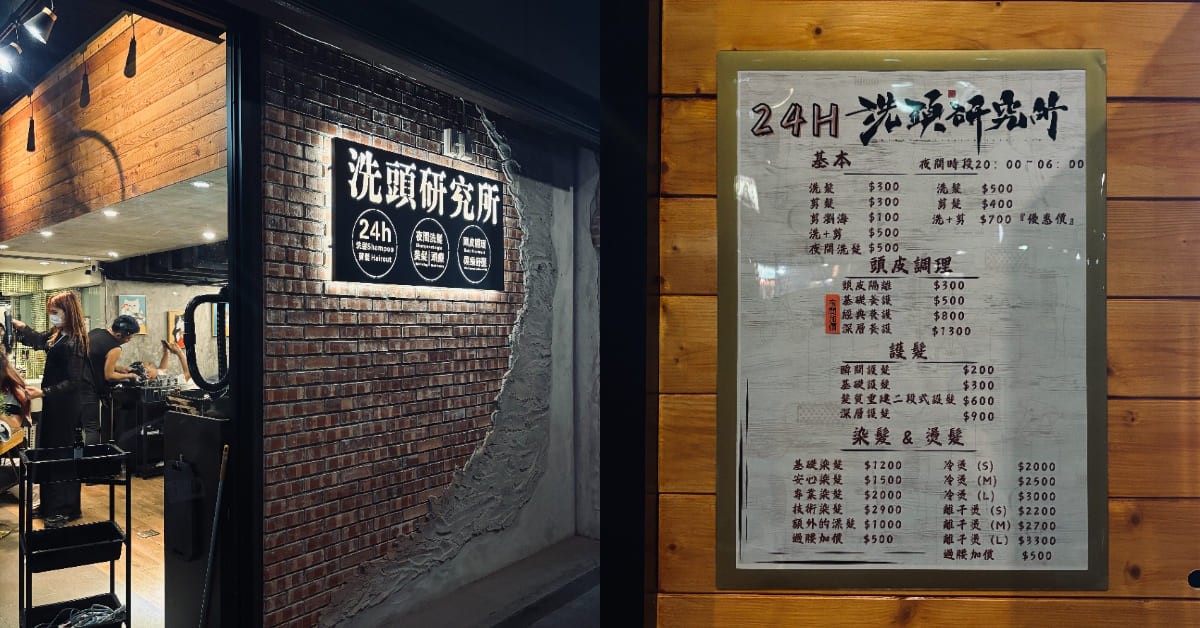 洗頭研究所
24h
洗髮Shampoo
剪髮 Haircut
夜間洗髮
美髮 頭療
頭皮調理
24H 洗頭研究所
基本
夜間時段20：00~06：00
洗髮 $300
剪髮 $300
剪瀏海 $100
洗+剪 $500
夜間洗髮 $500
洗髮 $500
剪髮 $400
洗+剪 $700『優惠價』
頭皮調理
頭皮隔離 $300
基礎養護 $500
經典養護 $800
深層養護 $1300
護髮
瞬間護髮 $200
基礎護髮 $300
髮質重建二段式護髮 $600
深層護髮 $900
染髮 & 燙髮
基礎染髮 $1200
安心染髮 $1500
專業染髮 $2000
技術染髮 $2900
額外的漂髮 $1000
過腰加價 $500
冷燙 (S) $2000
冷燙 (M) $2500
冷燙 (L) $3000
離干燙 (S) $2200
離干燙 (M) $2700
離干燙 (L) $3300
過腰加價 $500